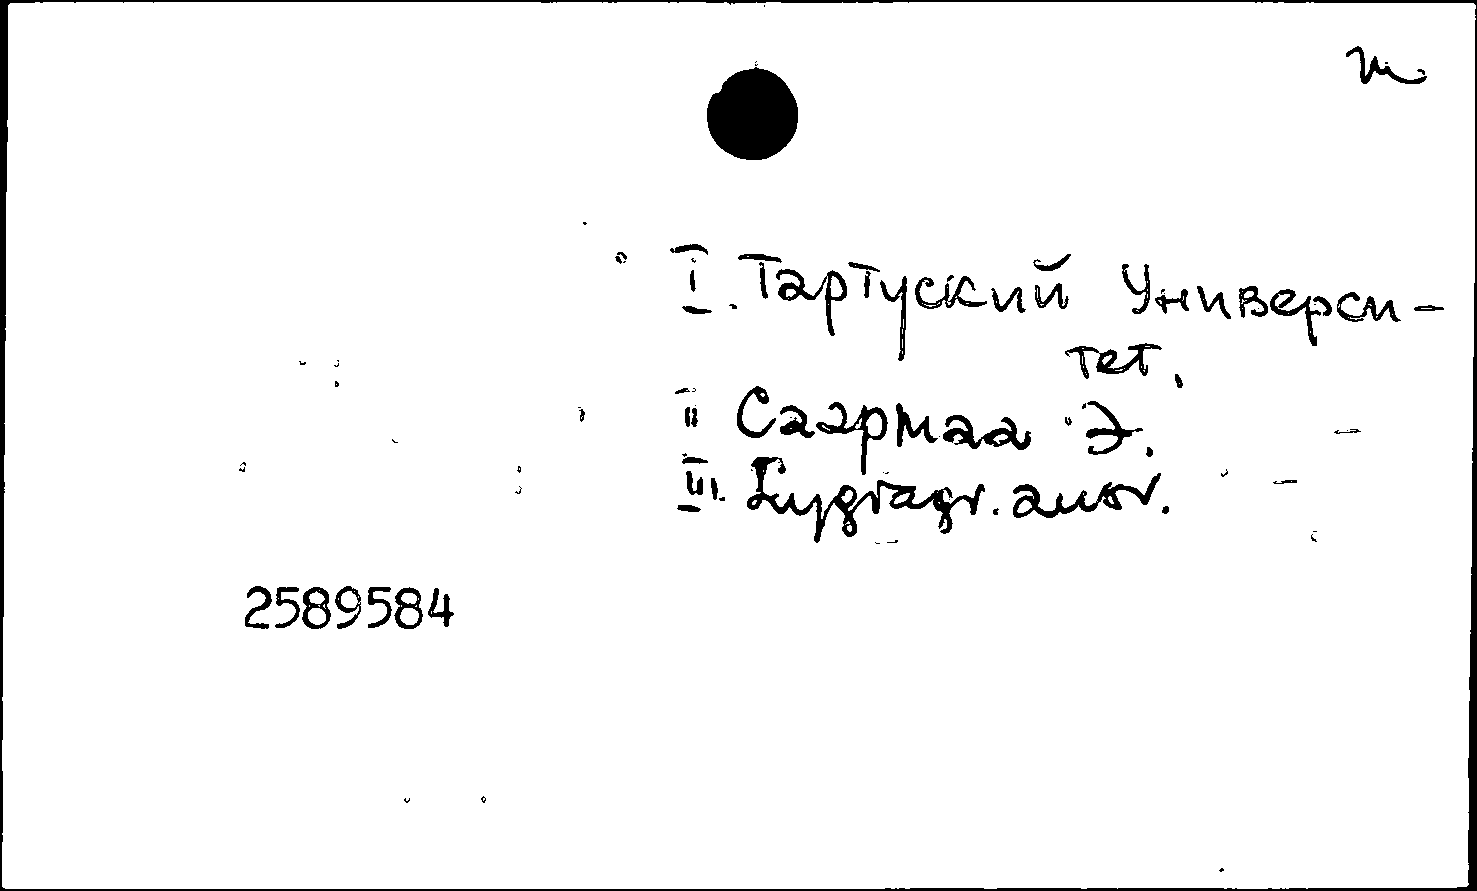 m
I. Тартуский Универси-
тет.
II Саармаа Э.
III.
2589584